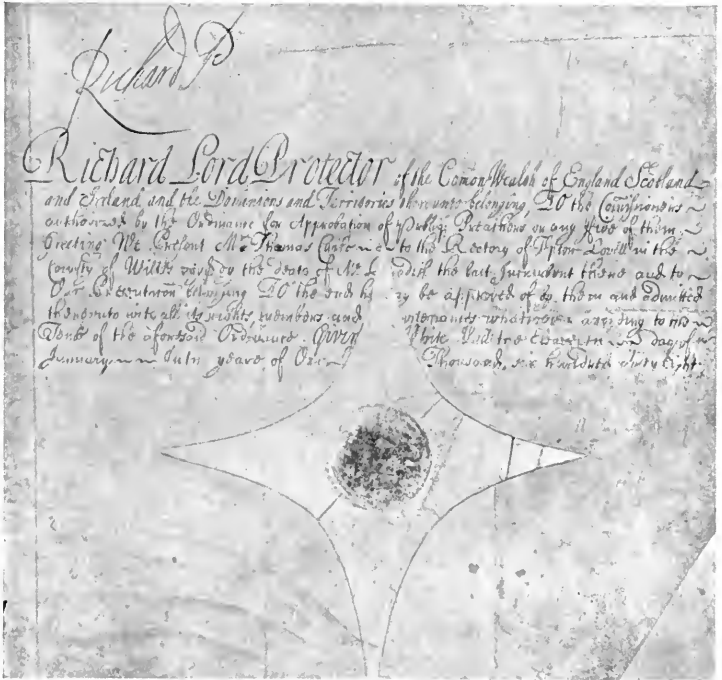 Richard P
Richard Lord Protector of the Comon Wealth of England Scotland
and Ireland and the Dominions and Territories thereunto belonging, To the Comissioners
authorised by the Ordinance for Approbation of Publique Preachers or any five of them
Greeting We Present Mr Thomas to the Rectory of in the
County of Wilts void by the death of Mr the last Incumbent there and to
Our Presentation belonging To the end he may be approved of by them and admitted
thereunto with all its rights members and whatsoever according to the
Tenor of the aforesaid Ordinance. Given White the day of
January In the yeare of Our Thousand, six hundred fifty Eight.